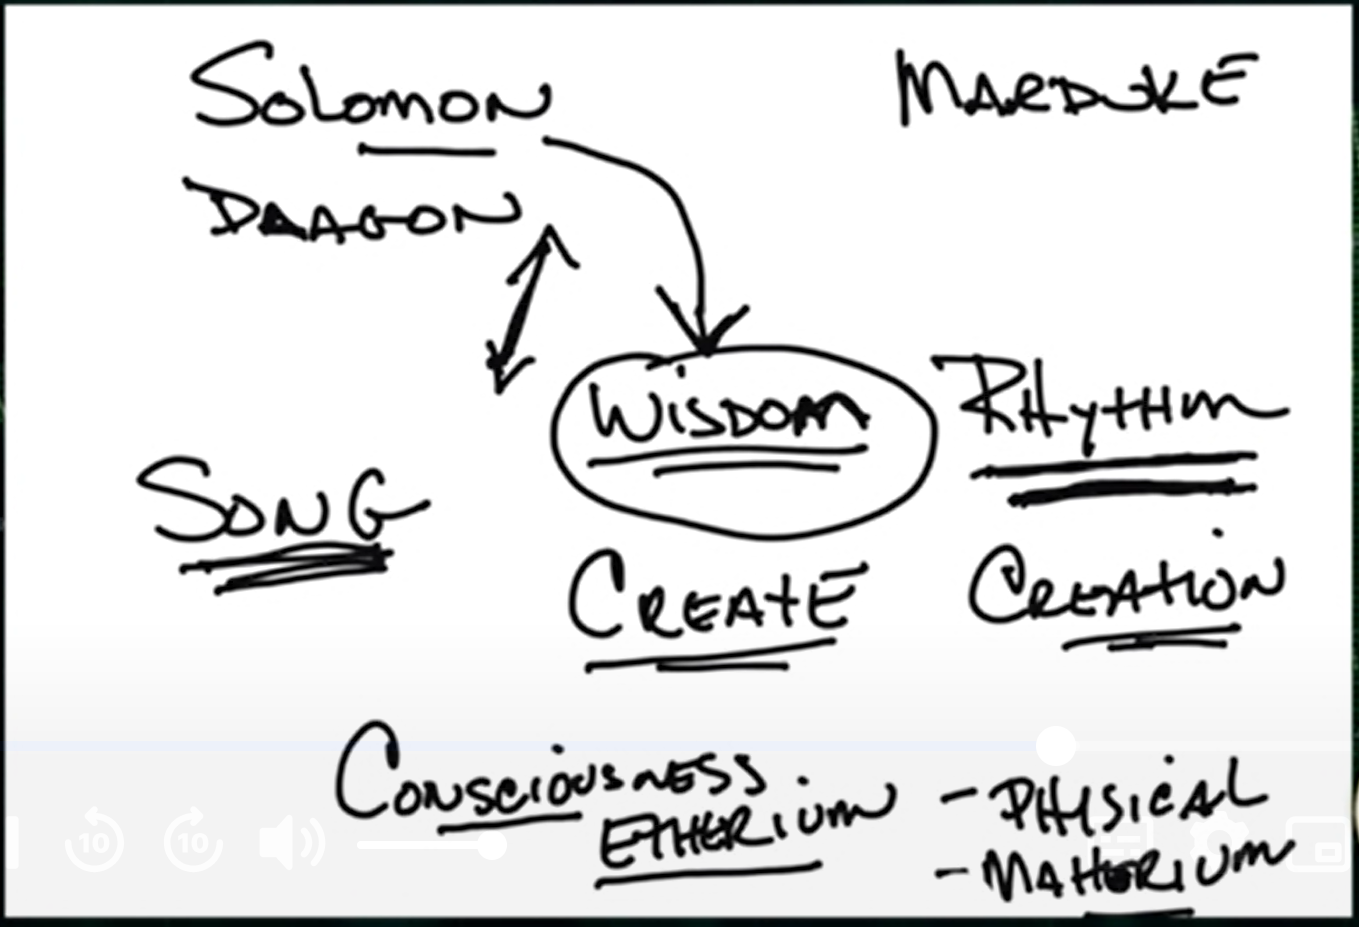 SOLOMON
MARDUKE
DRAGON
WISDOM
RHYTHM
SONG
CREATE
CREATION
CONSCIOUSNESS
- PHYSICAL
ETHERIUM
- MATTERIUM
10 10